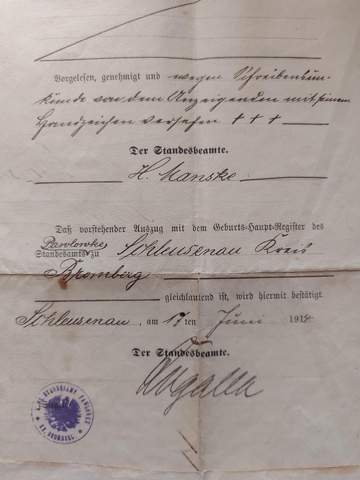 Vorgelesen, genehmigt und wegen Schreibensun-
kunde von dem Anzeigenden mit seinem
Handzeichen versehen + + +
Der Standesbeamte.
H. Manske.
Daß vorstehender Auszug mit dem Geburts-Haupt-Register des
Pawlowke
Standesamts zu Schleusenau Kreis
Bromberg
gleichlautend ist, wird hiermit bestätigt
Schleusenau, am 17 ten Juni 191
Der Standesbeamte.